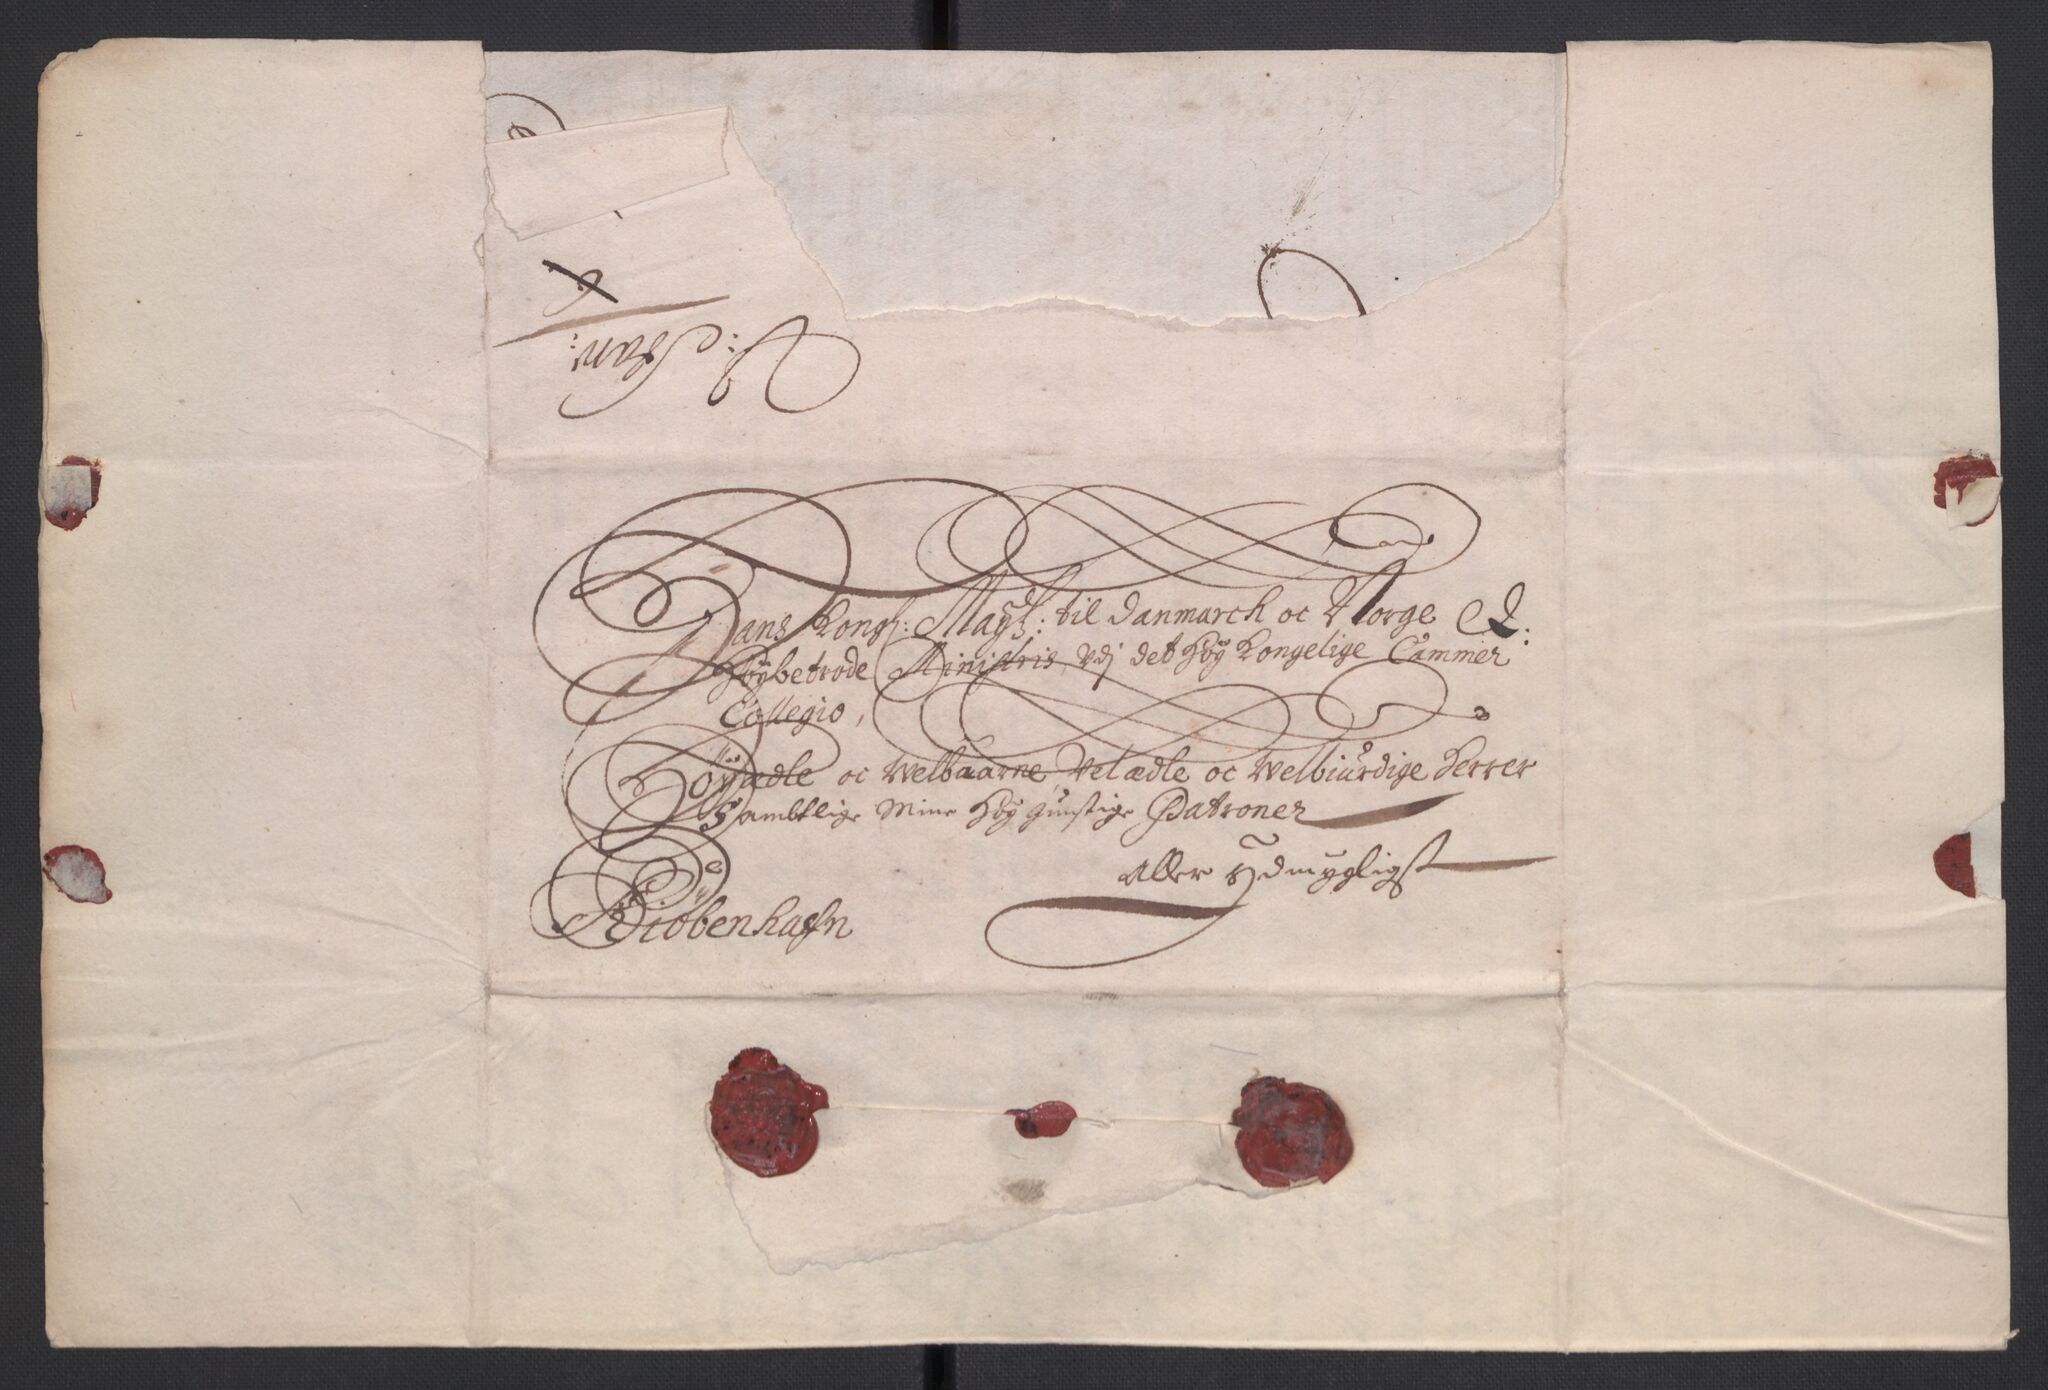 Hans Kongl: Mayt: til Danmarck oc Norge &:
Höÿbetrode Ministris, vdj det Höÿ Kongelige Cammer
Collegio,
Höÿædle oc Welbaarne, Velædle oc Welbiurdige Herrer
Sambtlige Mine Höÿ gunstige Patroner
Aller Ydmygligst
Kiöbenhaffn